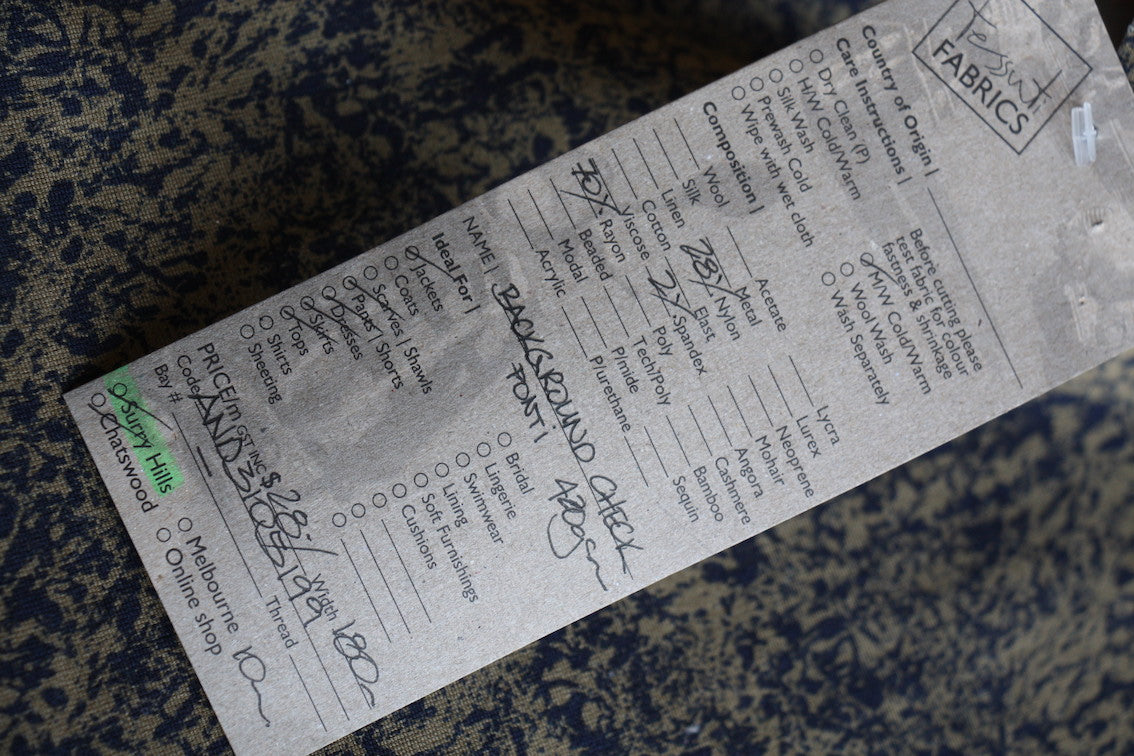 Tessuti
FABRICS
Country of Origin |
Care Instructions |
Dry Clean (P)
H/W Cold/Warm
Silk Wash
Prewash Cold
Wipe with wet cloth
Before cutting please
test fabric for colour
fastness & shrinkage
M/W Cold/Warm
Wool Wash
Wash Separately
Composition |
Wool
Silk
Linen
Cotton
Viscose
70% Rayon
Beaded
Modal
Acrylic
Acetate
Metal
28% Nylon
Elast
2% Spandex
Poly
Tech/Poly
P/mide
P/urethane
Lycra
Lurex
Neoprene
Mohair
Angora
Cashmere
Bamboo
Sequin
NAME | BACKGROUND CHECK
PONTI 420gsm
Ideal For |
Jackets
Coats
Scarves | Shawls
Pants | Shorts
Dresses
Skirts
Tops
Shirts
Sheeting
Bridal
Lingerie
Swimwear
Lining
Soft Furnishings
Cushions
PRICE/m GST INC $28.- Width 180
Code
Bay # Thread
Surry Hills
Chatswood
Melbourne
Online shop
10m